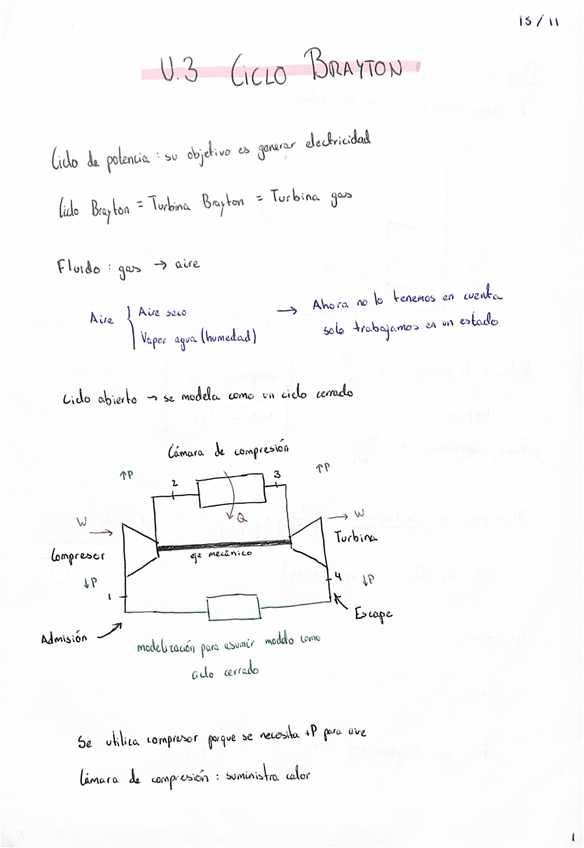 15/11
U.3 CICLO BRAYTON
Ciclo de potencia : su objetivo es generar electricidad
Ciclo Brayton = Turbina Brayton = Turbina gas
Fluido : gas → aire
Aire { Aire seco
Vapor agua (humedad)
→ Ahora no lo tenemos en cuenta
solo trabajamos en un estado
Ciclo abierto → se modela como un ciclo cerrado
Cámara de compresión
↑P 2 3 ↑P
Q
W → → W
Compresor eje mecánico Turbina
↓P 4 ↓P
1
Escape
Admisión
modelización para asumir modelo como
ciclo cerrado
Se utiliza compresor porque se necesita ↑P para aire
Cámara de compresión : suministra calor
1